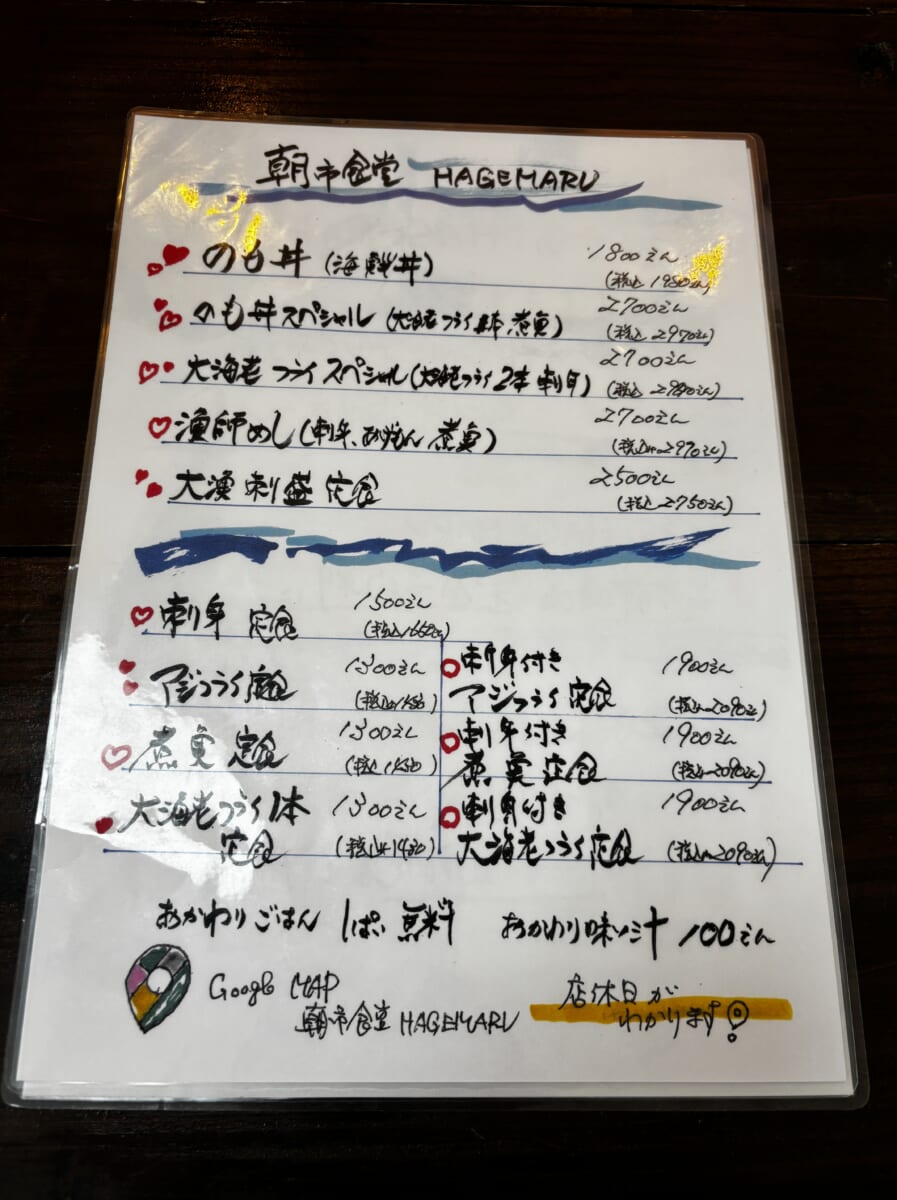 朝市食堂 HAGEMARU
のも丼(海鮮丼) 1800えん
(税込1980えん)
のも丼スペシャル(大海老フライ1本、煮魚) 2700えん
(税込2970えん)
大海老フライスペシャル(大海老フライ2本 刺身) 2700えん
(税込2970えん)
漁師めし(刺身、あげもん 煮魚) 2700えん
(税込2970えん)
大漁刺盛定食 2500えん
(税込2750えん)
刺身定食 1500えん
(税込1650えん)
アジフライ定食 1300えん
(税込1430)
煮魚定食 1300えん
(税込1430)
大海老フライ1本 1300えん
定食 (税込1430)
刺身付き 1900えん
アジフライ定食 (税込2090えん)
刺身付き 1900えん
煮魚定食 (税込2090えん)
刺身付き 1900えん
大海老フライ定食 (税込2090えん)
おかわりごはん 1ぱい無料 おかわり味ソ汁 100えん
Google MAP
朝市食堂 HAGEMARU
店休日が
わかります!